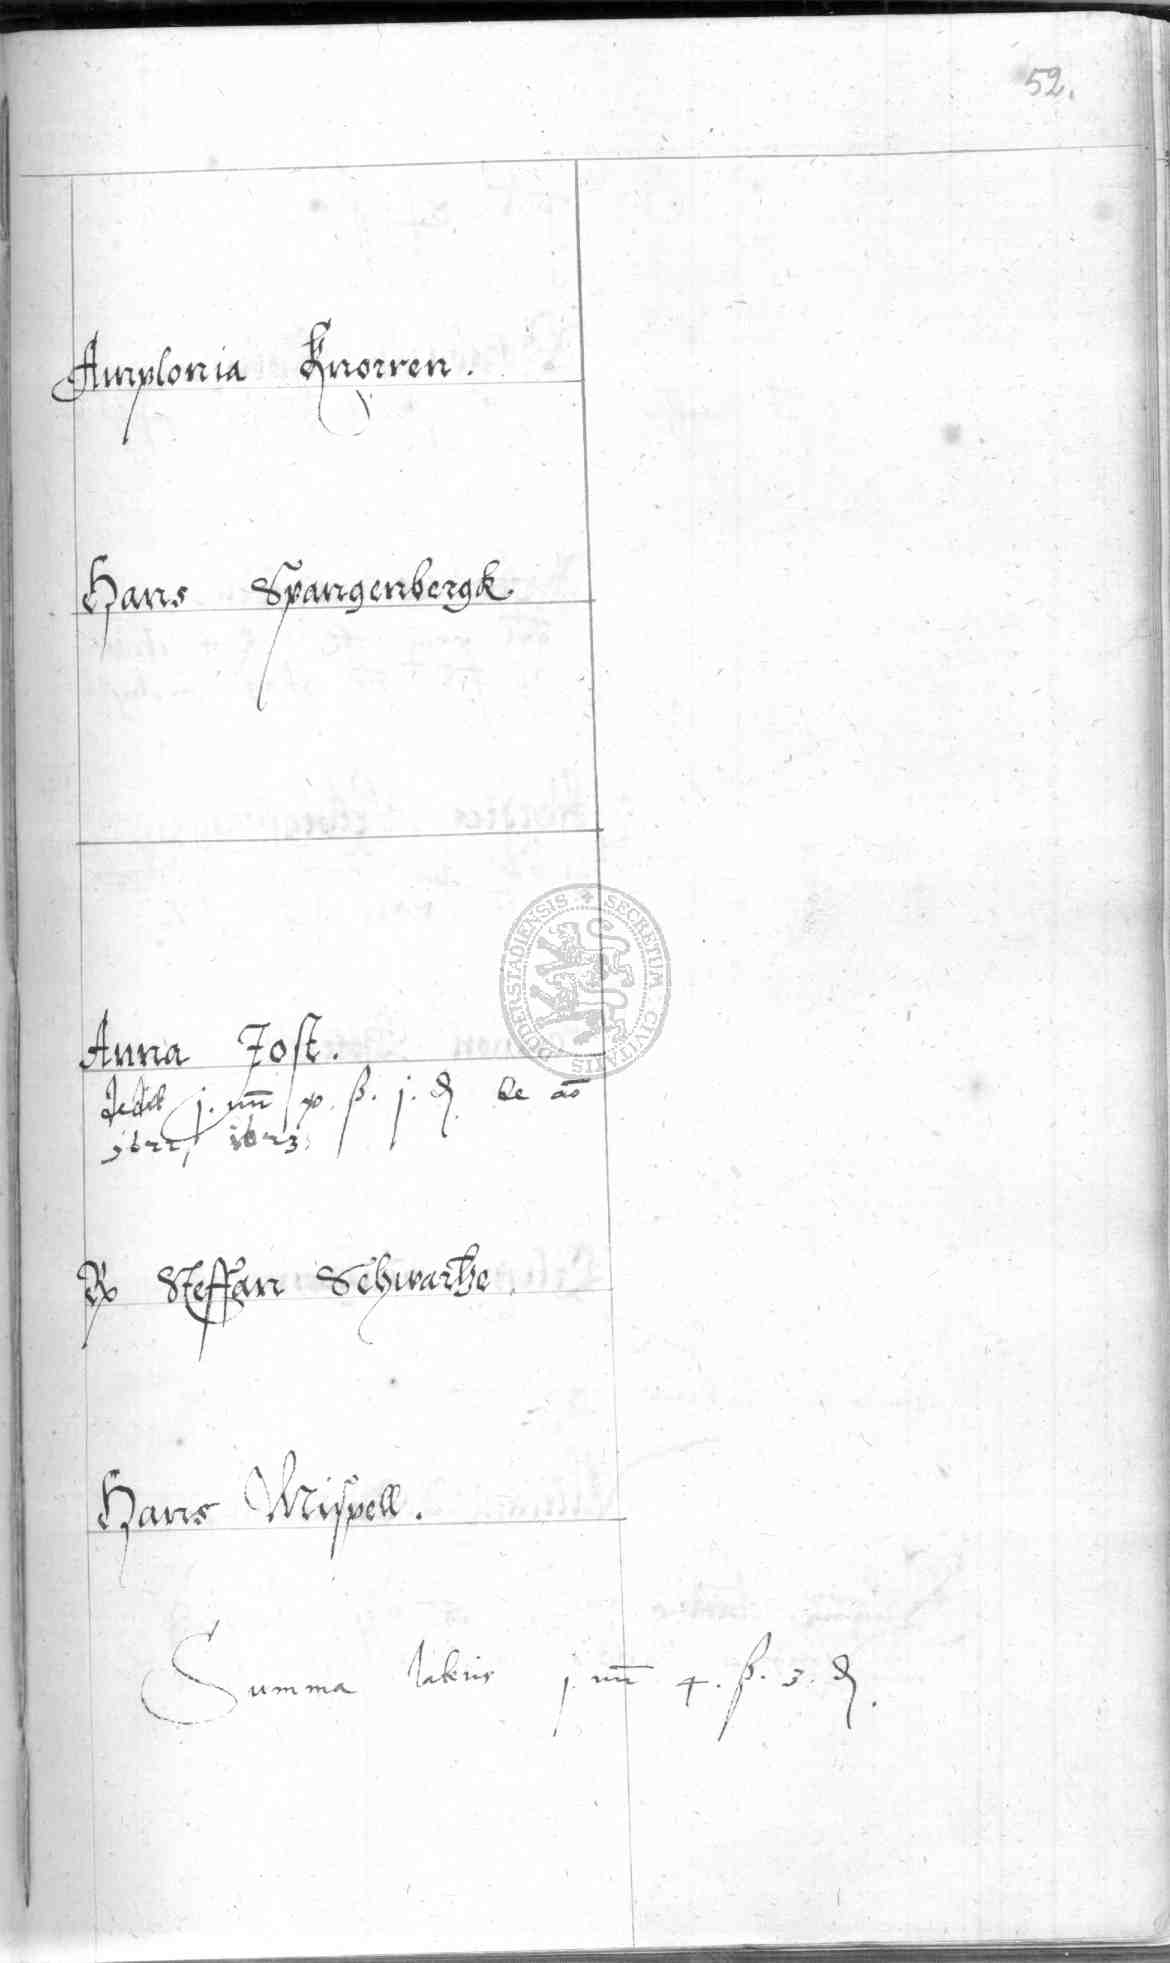 52.
Amplonia Knorren.
Hans Spangenbergk.
SECRETUM CIVITATIS DUDERSTADIENSIS
Anna Jost.
dedit j. m̄ ß. j. ₰. de ao
1622, 1623.
Steffan Schwartze.
Hans Mispell.
Summa lateris j. m̄ 4. ß. 3. ₰.